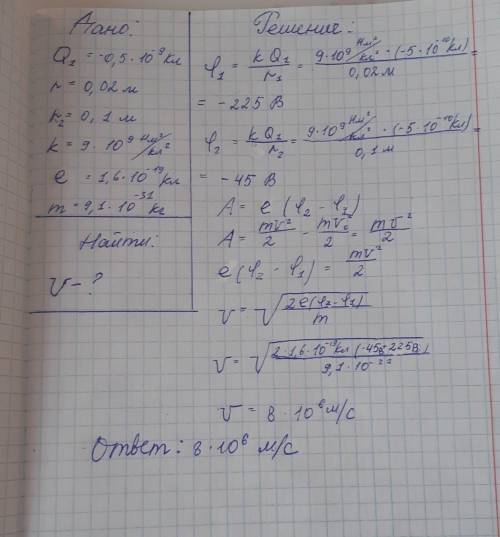 Дано:
Q₁ = -0,5 · 10⁻⁹ Кл
r = 0,02 м
r₂ = 0,1 м
k = 9 · 10⁹ Нм²/кл²
e = 1,6 · 10⁻¹⁹ Кл
m = 9,1 · 10⁻³¹ кг
Найти:
v - ?
Решение:
φ₁ = kQ₁/r₁ = 9·10⁹ Нм²/кл² · (-5·10⁻¹⁰ Кл)/0,02 м =
= -225 В
φ₂ = kQ₁/r₂ = 9·10⁹ Нм²/кл² · (-5·10⁻¹⁰ Кл)/0,1 м =
= -45 В
A = e (φ₂ - φ₁)
A = mv²/2 - mv₀²/2 = mv²/2
e(φ₂ - φ₁) = mv²/2
v = √(2e(φ₂-φ₁)/m)
v = √(2·1,6·10⁻¹⁹ Кл (-45В+225В)/9,1·10)
v = 8 · 10⁶ м/с
Ответ: 8·10⁶ м/с